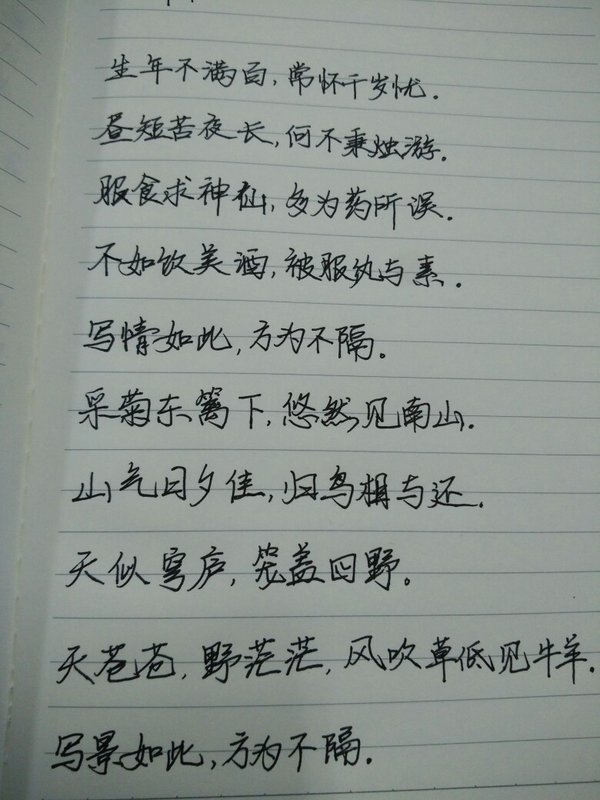 生年不满百,常怀千岁忧.
昼短苦夜长,何不秉烛游.
服食求神仙,多为药所误.
不如饮美酒,被服纨与素.
写情如此,方为不隔。
采菊东篱下,悠然见南山.
山气日夕佳,归鸟相与还.
天似穹庐,笼盖四野。
天苍苍,野茫茫,风吹草低见牛羊.
写景如此,方为不隔.